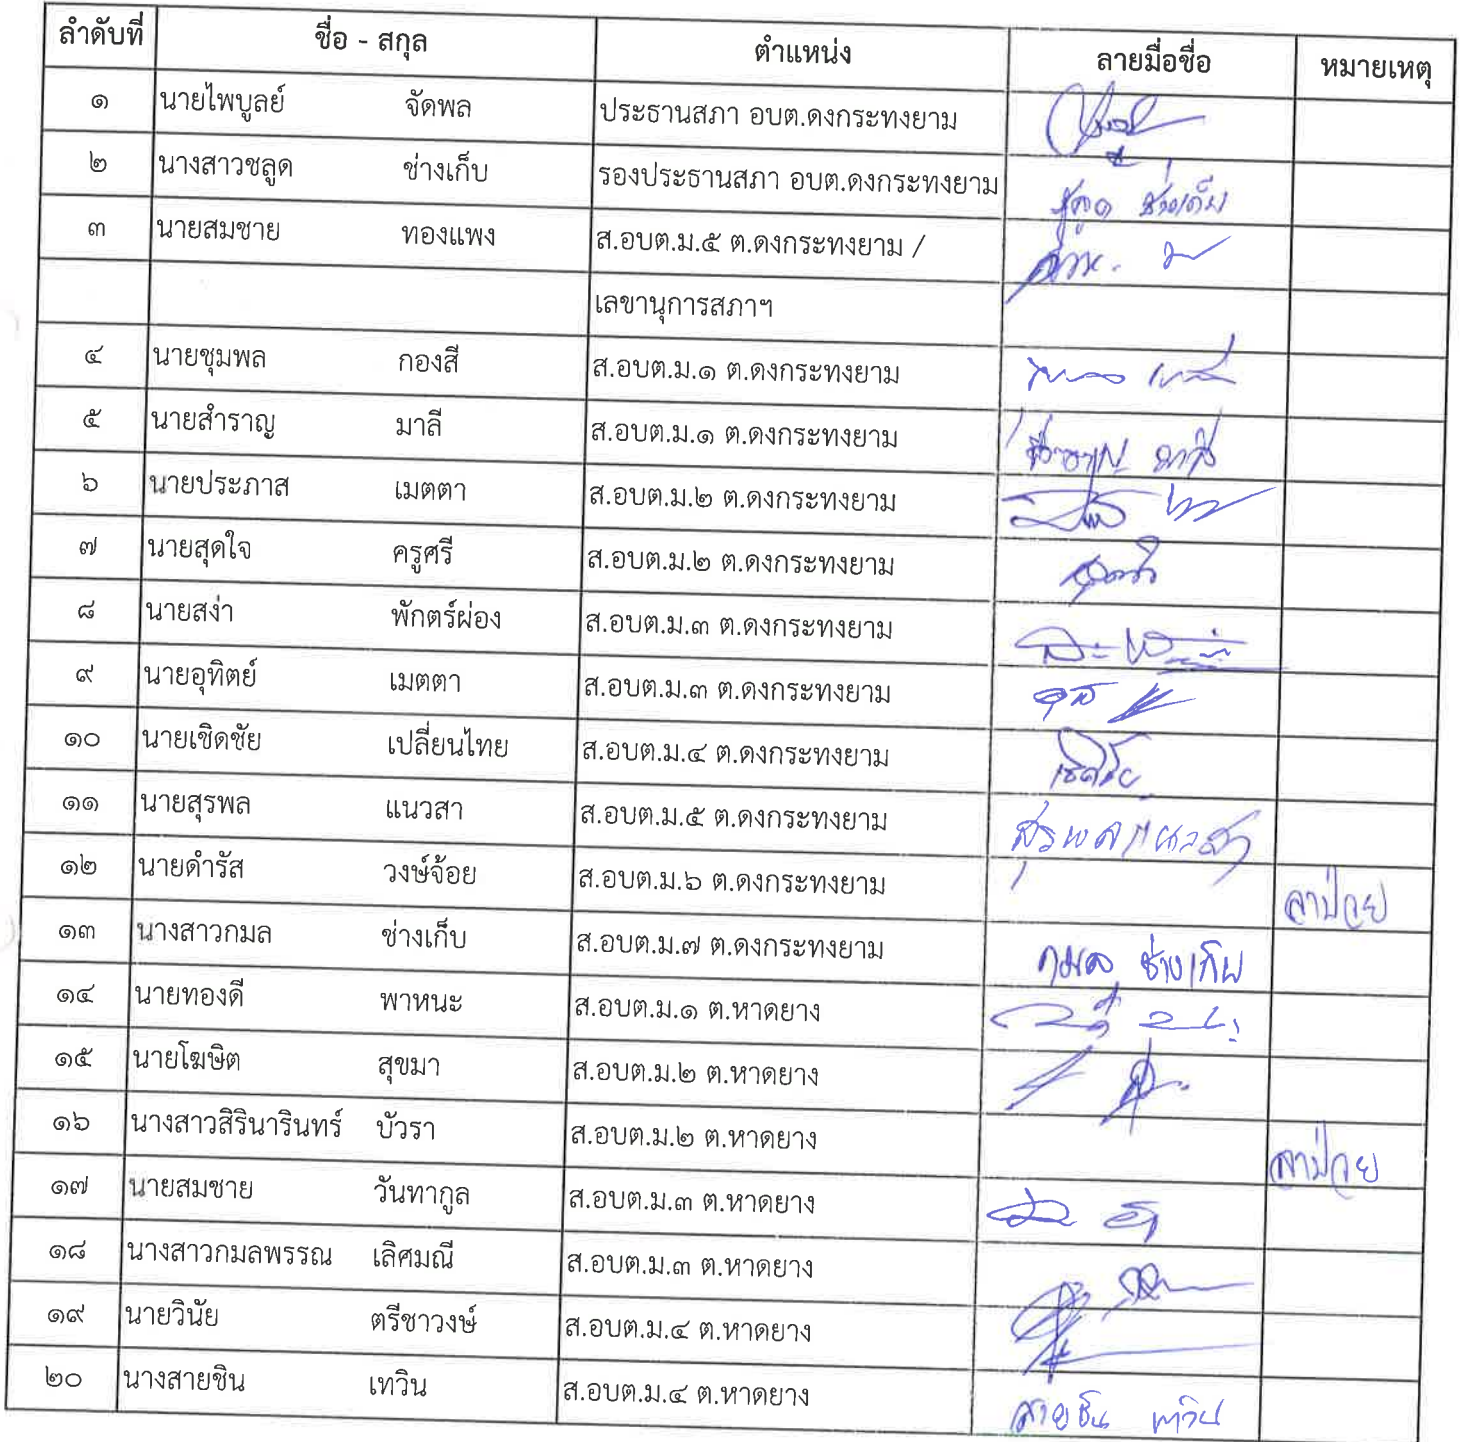 ลำดับที่ ชื่อ - สกุล ตำแหน่ง ลายมือชื่อ หมายเหตุ
๑ นายไพบูลย์ จัดพล ประธานสภา อบต.ดงกระทงยาม
๒ นางสาวชลูด ช่างเก็บ รองประธานสภา อบต.ดงกระทงยาม
๓ นายสมชาย ทองแพง ส.อบต.ม.๕ ต.ดงกระทงยาม /
เลขานุการสภาฯ
๔ นายชุมพล กองสี ส.อบต.ม.๑ ต.ดงกระทงยาม
๕ นายสำราญ มาลี ส.อบต.ม.๑ ต.ดงกระทงยาม
๖ นายประภาส เมตตา ส.อบต.ม.๒ ต.ดงกระทงยาม
๗ นายสุดใจ ครูศรี ส.อบต.ม.๒ ต.ดงกระทงยาม
๘ นายสง่า พักตร์ผ่อง ส.อบต.ม.๓ ต.ดงกระทงยาม
๙ นายอุทิตย์ เมตตา ส.อบต.ม.๓ ต.ดงกระทงยาม
๑๐ นายเชิดชัย เปลี่ยนไทย ส.อบต.ม.๔ ต.ดงกระทงยาม เชิดชัย
๑๑ นายสุรพล แนวสา ส.อบต.ม.๕ ต.ดงกระทงยาม สุรพล แนวสา
๑๒ นายดำรัส วงษ์จ้อย ส.อบต.ม.๖ ต.ดงกระทงยาม ลาป่วย
๑๓ นางสาวกมล ช่างเก็บ ส.อบต.ม.๗ ต.ดงกระทงยาม กมล ช่างเก็บ
๑๔ นายทองดี พาหนะ ส.อบต.ม.๑ ต.หาดยาง
๑๕ นายโฆษิต สุขมา ส.อบต.ม.๒ ต.หาดยาง
๑๖ นางสาวสิรินารินทร์ บัวรา ส.อบต.ม.๒ ต.หาดยาง ลาป่วย
๑๗ นายสมชาย วันทากูล ส.อบต.ม.๓ ต.หาดยาง
๑๘ นางสาวกมลพรรณ เลิศมณี ส.อบต.ม.๓ ต.หาดยาง
๑๙ นายวินัย ตรีชาวงษ์ ส.อบต.ม.๔ ต.หาดยาง
๒๐ นางสายชิน เทวิน ส.อบต.ม.๔ ต.หาดยาง สายชิน เทวิน